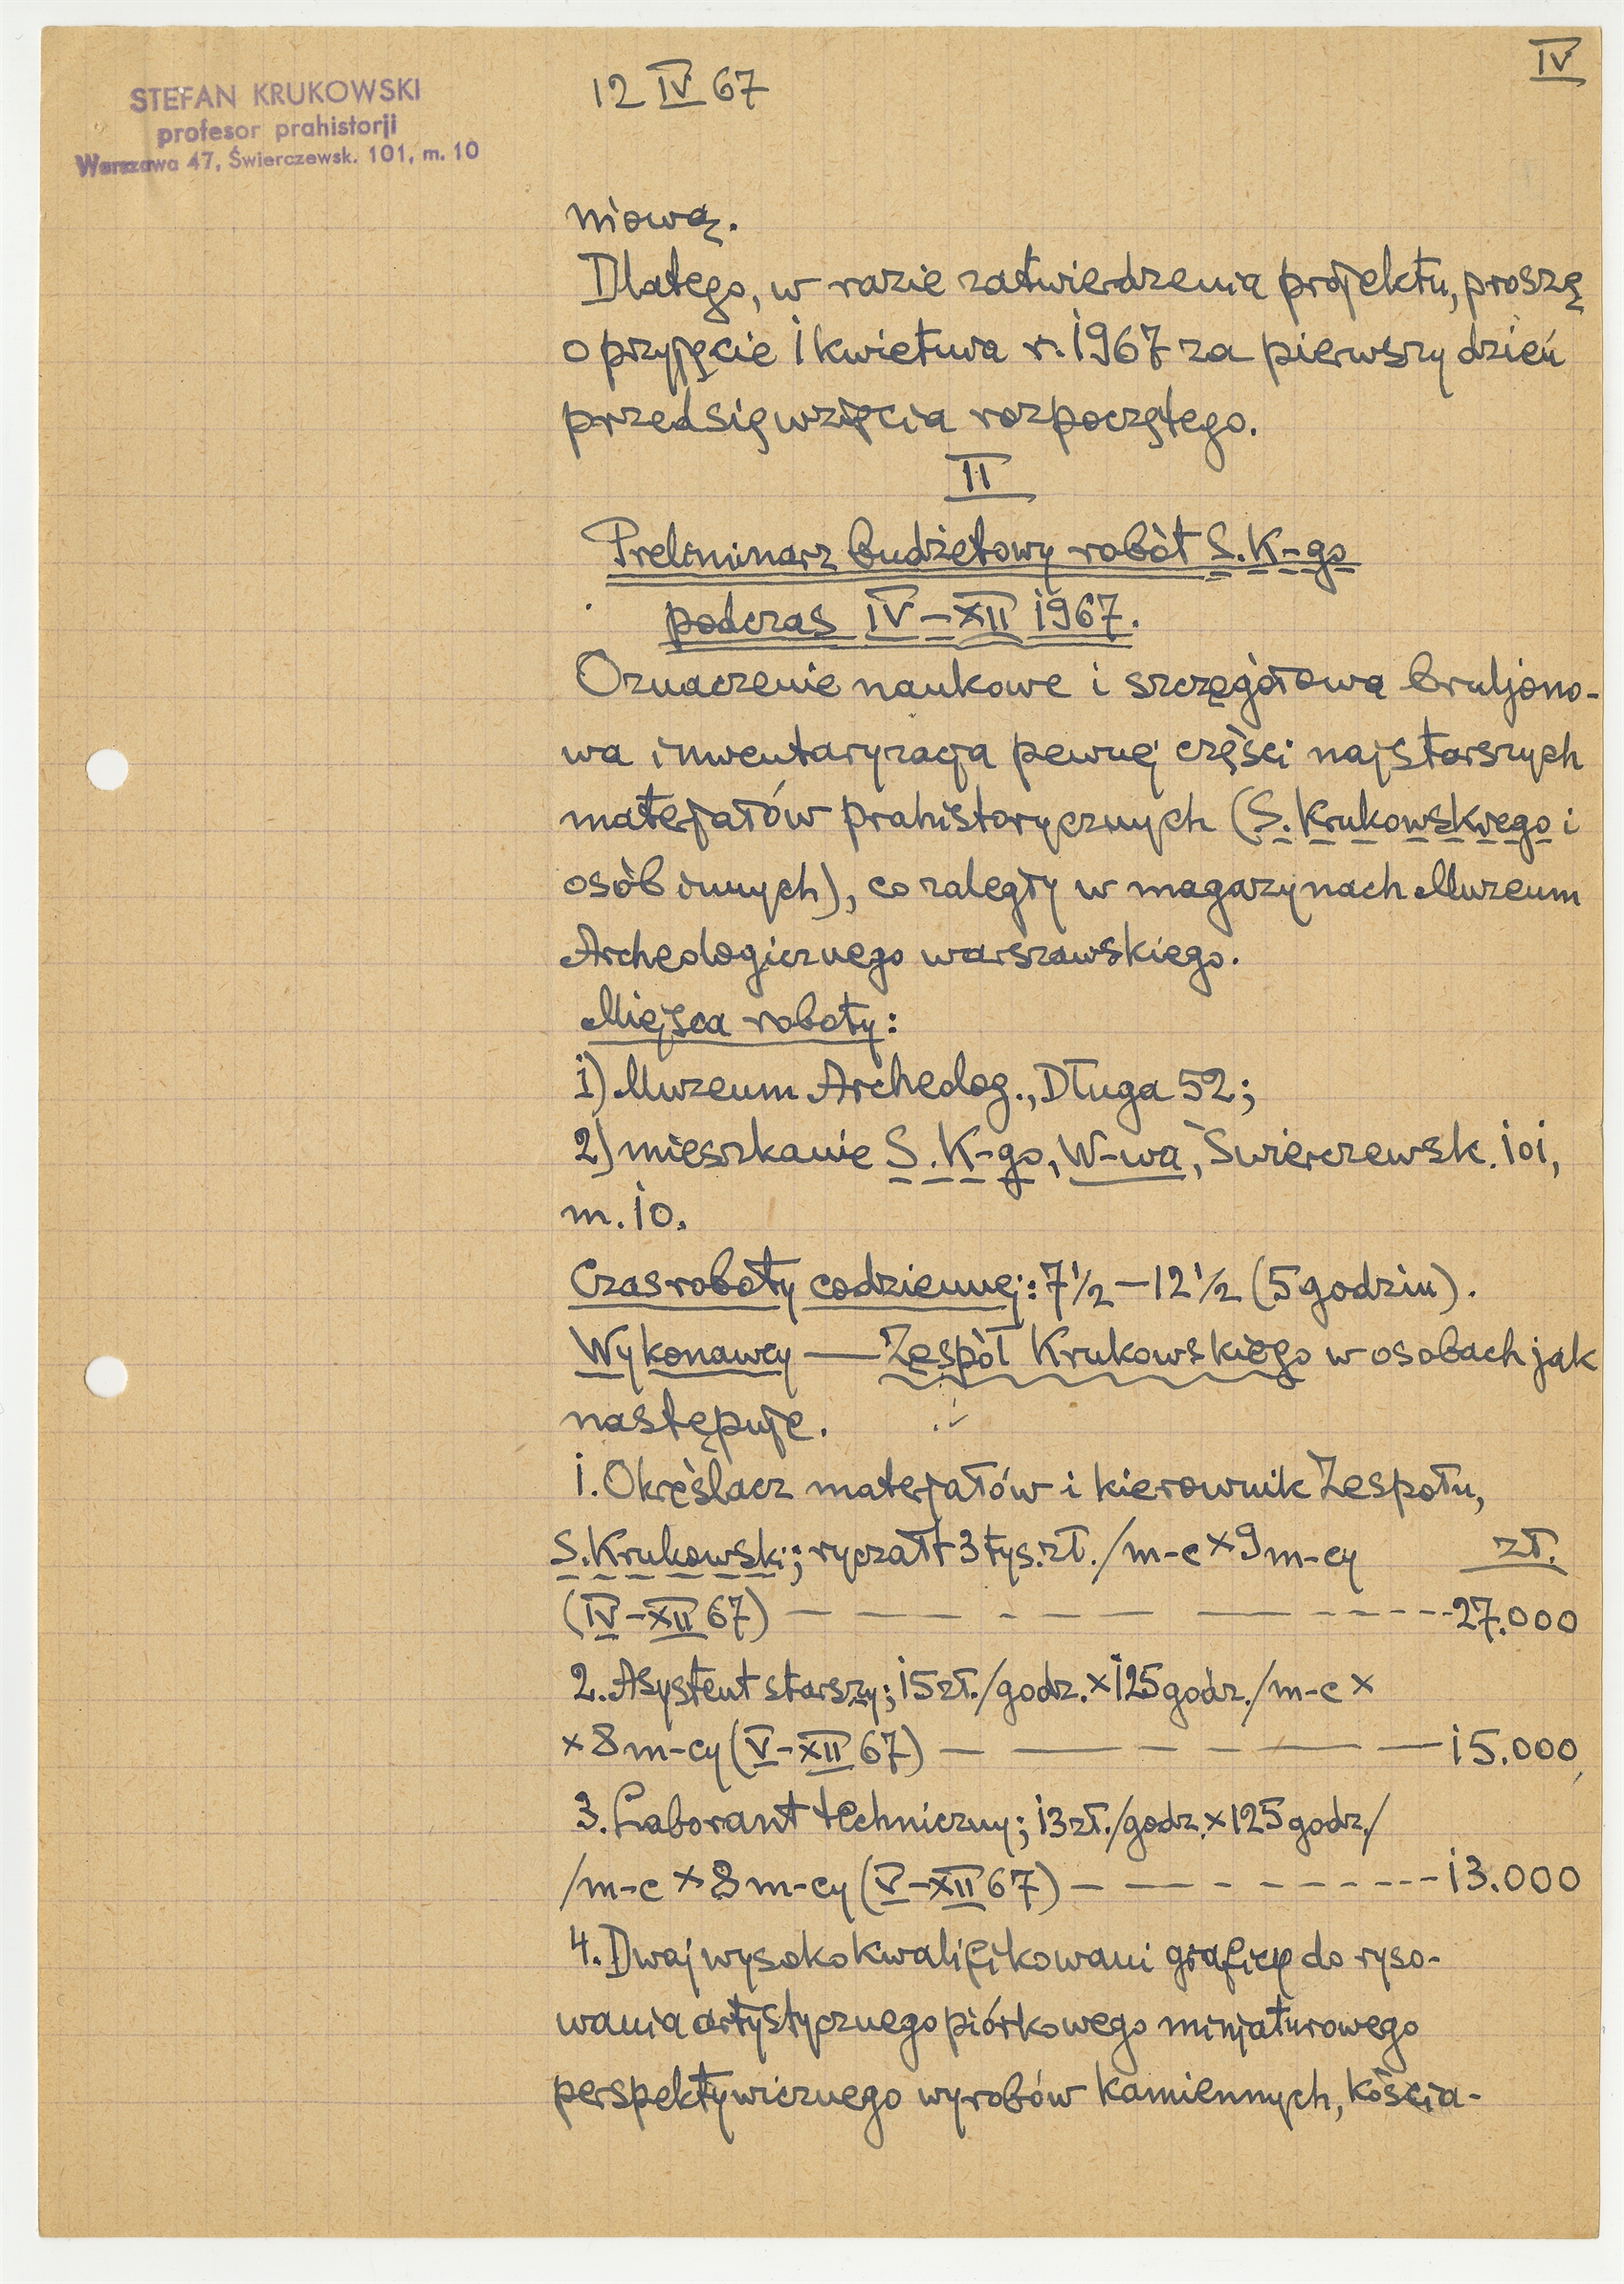 IV
STEFAN KRUKOWSKI
profesor prahistorji
Warszawa 47, Świerczewsk. 101, m. 10
12 IV 67
niową.
Dlatego, w razie zatwierdzenia projektu, proszę
o przyjęcie 1 kwietnia r. 1967 za pierwszy dzień
przedsięwzięcia rozpoczętego.
II
Preliminarz budżetowy robót S. K-go
podczas IV–XII 1967.
Oznaczenie naukowe i szczegółowa bruljono-
wa inwentaryzacja pewnej części najstarszych
materjałów prahistorycznych (S. Krukowskiego i
osób innych), co zaległy w magazynach Muzeum
Archeologicznego warszawskiego.
Miejsca roboty:
1) Muzeum Archeolog., Długa 52;
2) mieszkanie S. K-go, W-wa, Świerczewsk. 101,
m. 10.
Czas roboty codziennej: 7½ – 12½ (5 godzin).
Wykonawcy — Zespół Krukowskiego w osobach jak
następuje.
1. Określacz materjałów i kierownik Zespołu,
S. Krukowski; ryczałt 3 tys. zł. /m-c × 9 m-cy zł.
(IV–XII 67) — — — — — — 27.000
2. Asystent starszy; 15 zł./godz. × 125 godz./m-c ×
× 8 m-cy (V–XII 67) — — — — — — 15.000
3. Laborant techniczny; 13 zł./godz. × 125 godz./
/m-c × 8 m-cy (V–XII 67) — — — — — — 13.000
4. Dwaj wysoko kwalifikowani graficy do ryso-
wania artystycznego piórkowego minjaturowego
perspektywicznego wyrobów kamiennych, kościa-